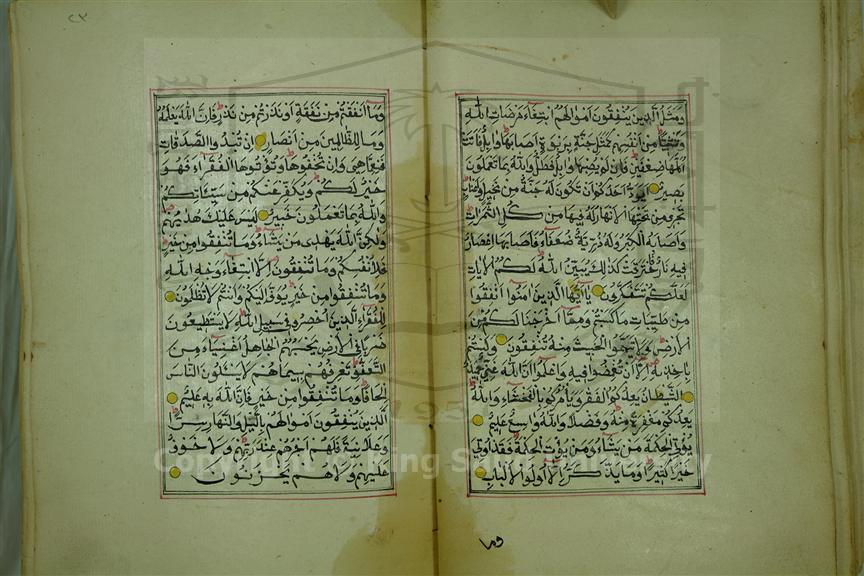 ومثل الذين ينفقون اموالهم ابتغاء مرضات الله
وتثبيتا من انفسهم كمثل جنة بربوة اصابها وابل فاتت
اكلها ضعفين فان لم يصبها وابل فطل والله بما تعملون
بصير ايود احدكم ان تكون له جنة من نخيل واعناب
تجرى من تحتها الانهار له فيها من كل الثمرات
واصابه الكبر وله ذرية ضعفاء فاصابها اعصار
فيه نار فاحترقت كذلك يبين الله لكم الايات
لعلكم تتفكرون ياايها الذين امنوا انفقوا
من طيبات ما كسبتم ومما اخرجنا لكم من
الارض ولا تيمموا الخبيث منه تنفقون ولستم
باخذيه الا ان تغمضوا فيه واعلموا ان الله غنى حميد
الشيطان يعدكم الفقر ويامركم بالفحشاء والله
يعدكم مغفرة منه وفضلا والله واسع عليم
يؤتى الحكمة من يشاء ومن يؤت الحكمة فقد اوتى
خيرا كثيرا وما يذكر الا اولوا الالباب
وما
٢٣
وما انفقتم من نفقة او نذرتم من نذر فان الله يعلمه
وما للظالمين من انصار ان تبدوا الصدقات
فنعما هى وان تخفوها وتؤتوها الفقراء فهو
خير لكم ويكفر عنكم من سيئاتكم
والله بما تعملون خبير ليس عليك هديهم
ولكن الله يهدى من يشاء وما تنفقوا من خير
فلانفسكم وما تنفقون الا ابتغاء وجه الله
وما تنفقوا من خير يوف اليكم وانتم لا تظلمون
للفقراء الذين احصروا فى سبيل الله لا يستطيعون
ضربا فى الارض يحسبهم الجاهل اغنياء من
التعفف تعرفهم بسيماهم لا يسئلون الناس
الحافا وما تنفقوا من خير فان الله به عليم
الذين ينفقون اموالهم بالليل والنهار سرا
وعلانية فلهم اجرهم عند ربهم ولا خوف
عليهم ولا هم يحزنون
Copyright © King Saud University
1957